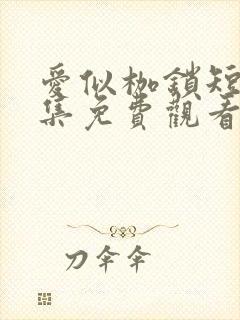 愛似枷鎖短
集免費觀看
刀伞伞